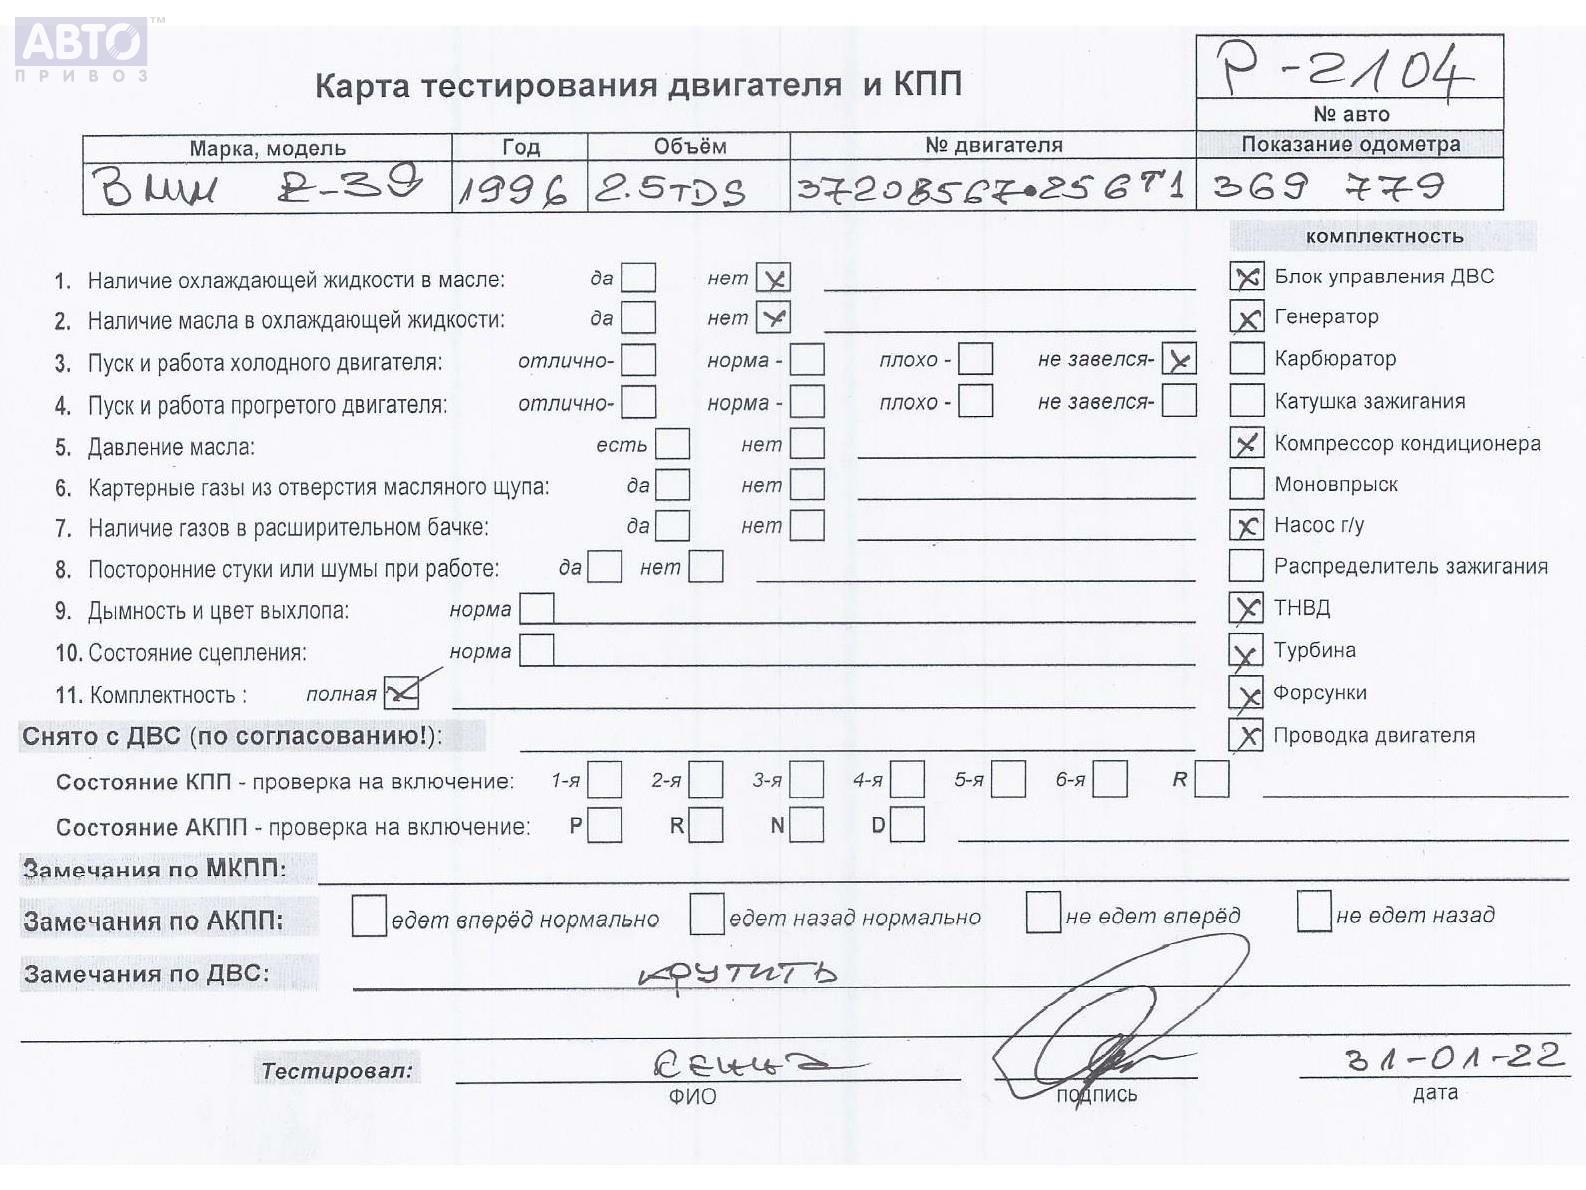 АВТО ™
ПРИВОЗ
Р-2104
Карта тестирования двигателя и КПП
№ авто
Марка, модель Год Объём № двигателя Показание одометра
ВМW Е-39 1996 2.5TDS 37208567•256T1 369 779
комплектность
1. Наличие охлаждающей жидкости в масле: да нет Блок управления ДВС
2. Наличие масла в охлаждающей жидкости: да нет Генератор
3. Пуск и работа холодного двигателя: отлично- норма - плохо - не завелся- Карбюратор
4. Пуск и работа прогретого двигателя: отлично- норма - плохо - не завелся- Катушка зажигания
5. Давление масла: есть нет Компрессор кондиционера
6. Картерные газы из отверстия масляного щупа: да нет Моновпрыск
7. Наличие газов в расширительном бачке: да нет Насос г/у
8. Посторонние стуки или шумы при работе: да нет Распределитель зажигания
9. Дымность и цвет выхлопа: норма ТНВД
10. Состояние сцепления: норма Турбина
11. Комплектность : полная Форсунки
Снято с ДВС (по согласованию!): Проводка двигателя
Состояние КПП - проверка на включение: 1-я 2-я 3-я 4-я 5-я 6-я R
Состояние АКПП - проверка на включение: P R N D
Замечания по МКПП:
Замечания по АКПП: едет вперёд нормально едет назад нормально не едет вперёд не едет назад
Замечания по ДВС: крутить
Тестировал: 31-01-22
ФИО подпись дата